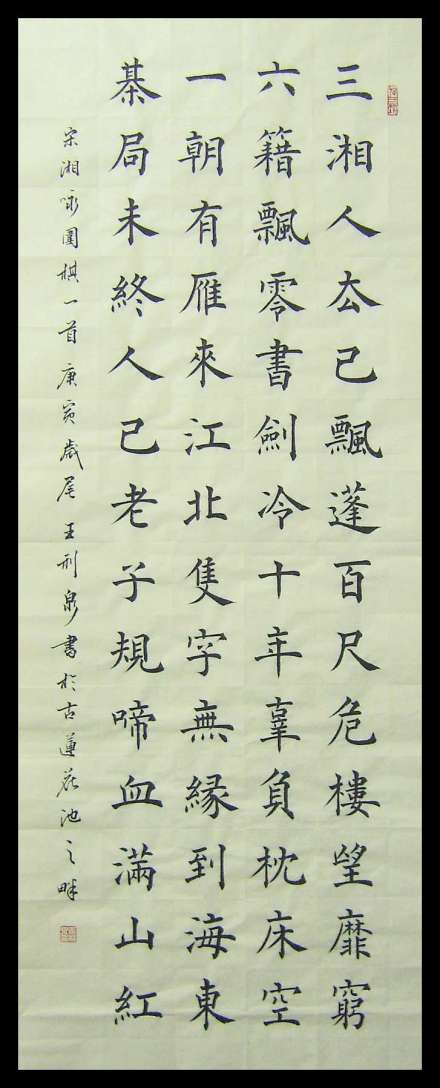 三湘人去已飄蓬百尺危樓望靡窮
六籍飄零書劍冷十年辜負枕床空
一朝有雁來江北隻字無緣到海東
棊局未終人已老子規啼血滿山紅
宋湘咏圍棋一首 庚寅歲尾 王刑泉書於古蓮花池之畔